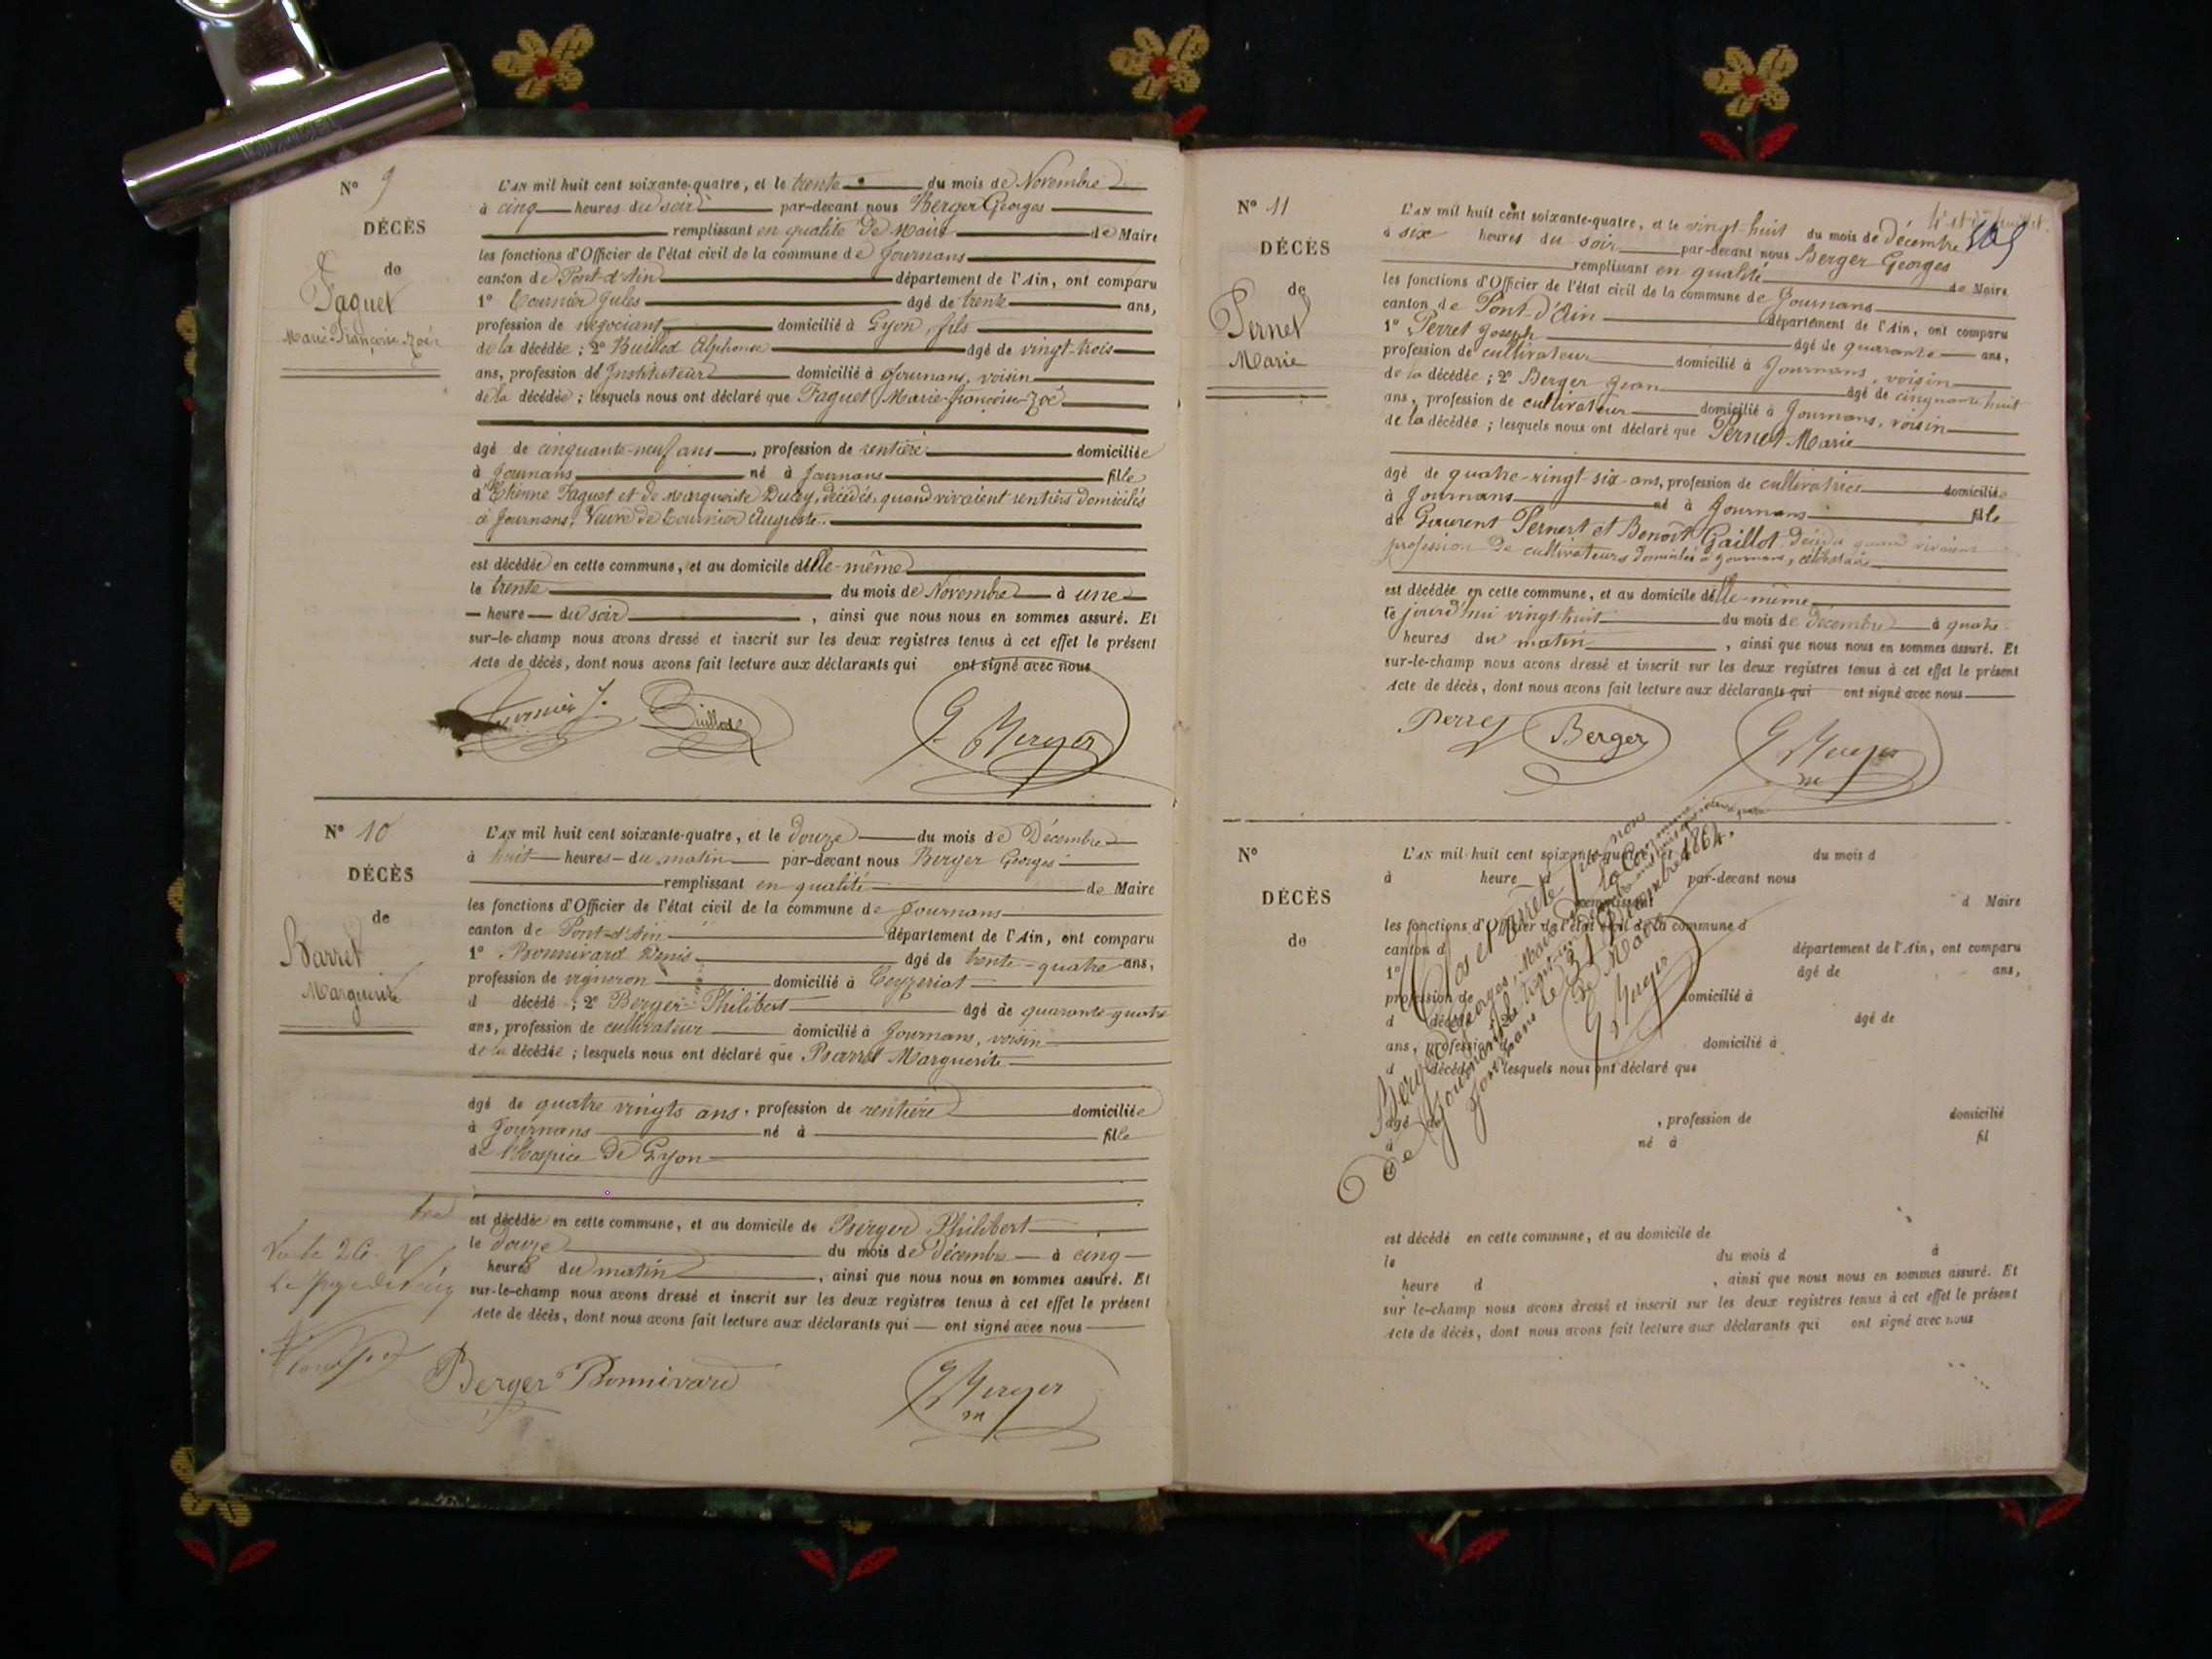 N° 9
DÉCÈS
de
Faguet
Marie-Françoise-Zoé
L'AN mil huit cent soixante-quatre, et le trente du mois de Novembre
à cinq heures du soir par-devant nous Berger Georges
remplissant en qualité de Maire de Maire
les fonctions d'Officier de l'état civil de la commune de Journans
canton de Pont-d'Ain département de l'Ain, ont comparu
1° Cournier Jules âgé de trente ans,
profession de négociant domicilié à Lyon, fils
de la décédée ; 2° Alphonse âgé de vingt-trois
ans, profession de Instituteur domicilié à Journans, voisin
de la décédée ; lesquels nous ont déclaré que Faguet Marie-françoise-Zoé
âgé de cinquante-neuf ans, profession de rentière domiciliée
à Journans né à Journans fille
d'Etienne Faguet et de Marguerite Ducy, décédés, quand vivaient rentiers domiciliés
à Journans, Veuve de Cournier Auguste.
est décédée en cette commune, et au domicile d'elle-même
le trente du mois de Novembre à une
heure du soir , ainsi que nous nous en sommes assuré. Et
sur-le-champ nous avons dressé et inscrit sur les deux registres tenus à cet effet le présent
Acte de décès, dont nous avons fait lecture aux déclarants qui ont signé avec nous
G Berger
N° 10
DÉCÈS
de
Barret
Marguerite
L'AN mil huit cent soixante-quatre, et le douze du mois de Décembre
à huit heures du matin par-devant nous Berger Georges
remplissant en qualité de Maire
les fonctions d'Officier de l'état civil de la commune de Journans
canton de Pont-d'Ain département de l'Ain, ont comparu
1° Bonnivard Denis âgé de trente-quatre ans,
profession de vigneron domicilié à Ceyzeriat
d décédé ; 2° Berger Philibert âgé de quarante-quatre
ans, profession de cultivateur domicilié à Journans, voisin
de la décédée ; lesquels nous ont déclaré que Barret Marguerite
âgé de quatre vingts ans, profession de rentière domiciliée
à Journans né à fille
de l'hospice de Lyon
est décédée en cette commune, et au domicile de Berger Philibert
le douze du mois de décembre à cinq
heures du matin , ainsi que nous nous en sommes assuré. Et
sur-le-champ nous avons dressé et inscrit sur les deux registres tenus à cet effet le présent
Acte de décès, dont nous avons fait lecture aux déclarants qui ont signé avec nous
Berger Bonnivard G Berger
m
N° 11
DÉCÈS
de
Pernet
Marie
L'AN mil huit cent soixante-quatre, et le vingt-huit du mois de décembre
à six heures du soir par-devant nous Berger Georges
remplissant en qualité de Maire
les fonctions d'Officier de l'état civil de la commune de Journans
canton de Pont-d'Ain département de l'Ain, ont comparu
1° Perret Joseph âgé de quarante ans,
profession de cultivateur domicilié à Journans, voisin
de la décédée ; 2° Berger Jean âgé de cinquante huit
ans, profession de cultivateur domicilié à Journans, voisin
de la décédée ; lesquels nous ont déclaré que Pernet Marie
âgé de quatre-vingt-six ans, profession de cultivatrice domiciliée
à Journans né à Journans fille
de Laurent Pernet et Benoît Gaillot quand vivaient
profession de cultivateurs domiciliés à Journans, célibataire
est décédée en cette commune, et au domicile d'elle-même
le jourd'hui vingt-huit du mois de décembre à quatre
heures du matin , ainsi que nous nous en sommes assuré. Et
sur-le-champ nous avons dressé et inscrit sur les deux registres tenus à cet effet le présent
Acte de décès, dont nous avons fait lecture aux déclarants qui ont signé avec nous
Perret Berger G Berger
m
N°
DÉCÈS
de
L'AN mil huit cent soixante-quatre, et du mois d
à heure d par-devant nous
remplissant d Maire
les fonctions d'Officier de l'état civil de la commune d
canton d département de l'Ain, ont comparu
1° âgé de ans,
profession de domicilié à
d décédé 2° âgé de
ans, profession d domicilié à
d décédé lesquels nous ont déclaré que
âgé de , profession de domicilié
à né à fil
d
Clos et arrêté par nous
Berger Georges, Maire de la Commune
de Journans
Journans le 31 Décembre 1864.
Le Maire
G Berger
est décédé en cette commune, et au domicile de
le du mois d à
heure d , ainsi que nous nous en sommes assuré. Et
sur le-champ nous avons dressé et inscrit sur les deux registres tenus à cet effet le présent
Acte de décès, dont nous avons fait lecture aux déclarants qui ont signé avec nous